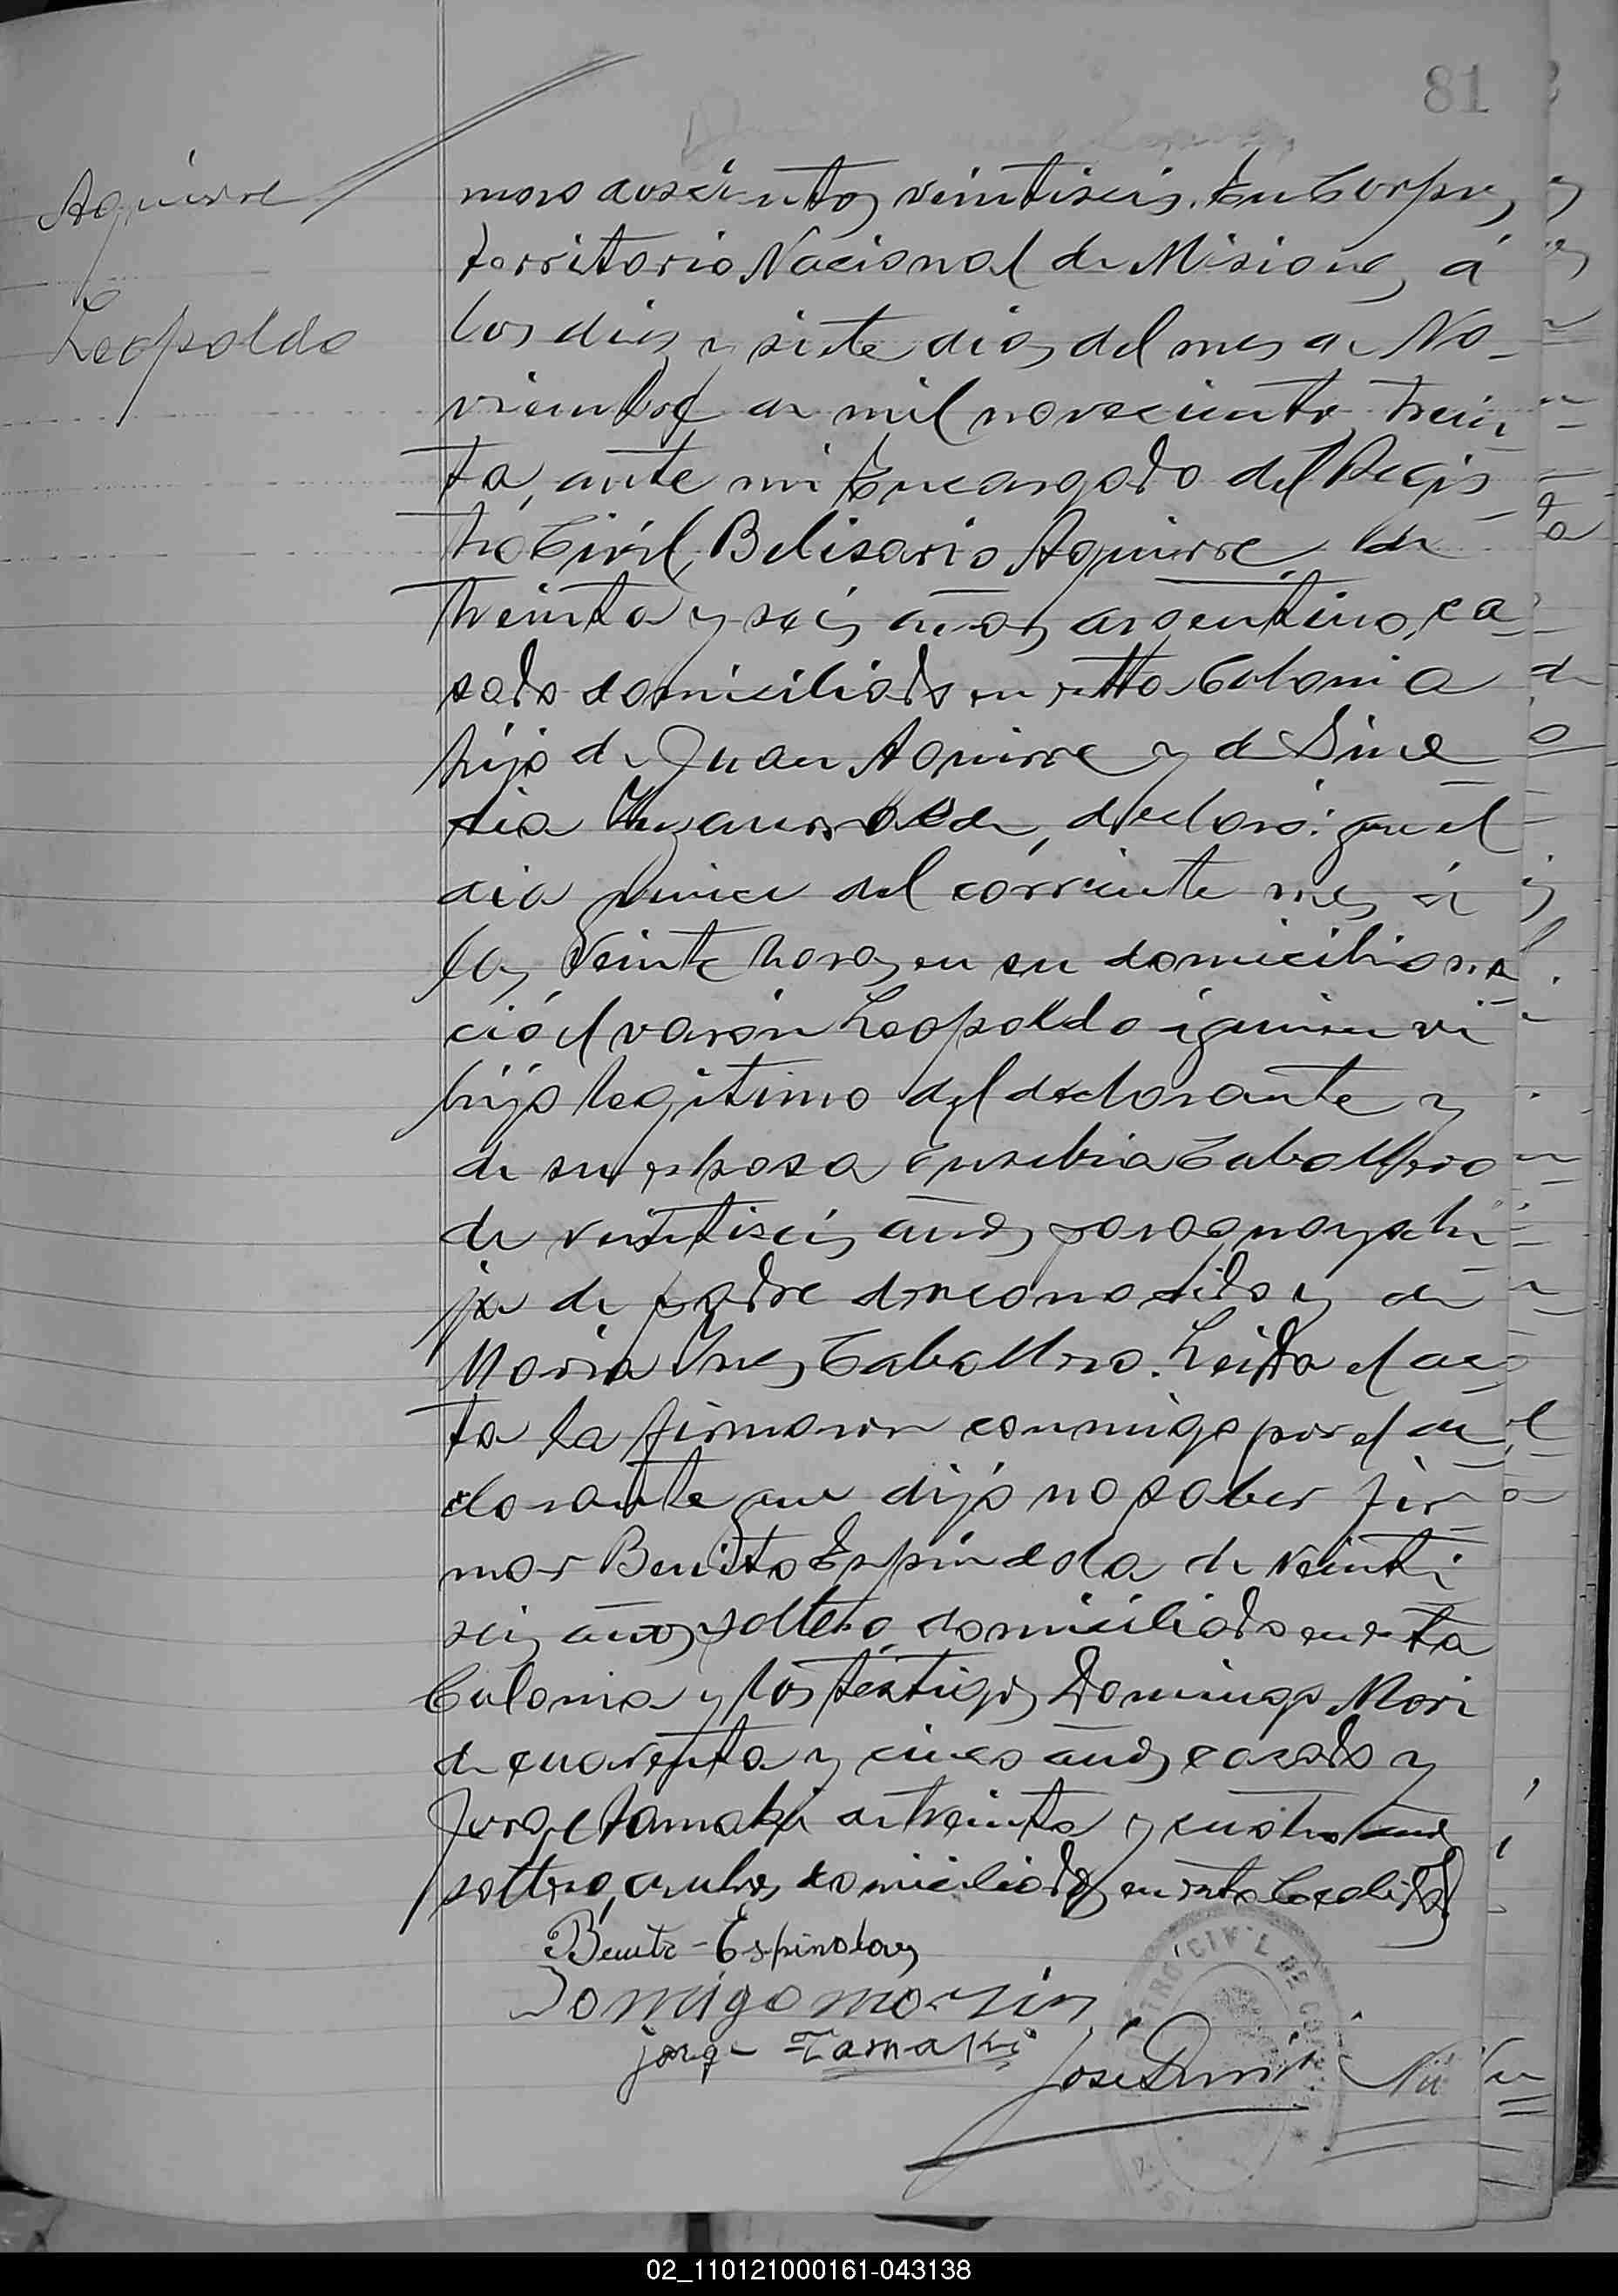 81
Aguirre
Leopoldo
mero doscientos veintiseis. En Corpus,
territorio Nacional de Misiones, á
los diez y siete dias del mes de No-
viembre de mil novecientos trein-
ta, ante mi Encargado del Regis-
tro Civil, Belisario Aguirre, de
treinta y seis años, argentino, ca-
sado domiciliado en esta Colonia
hijo de Juan Aguirre y de
declaró: que el
dia quince del corriente mes á
las veinte horas, en su domicilio na-
ció el varón Leopoldo
hijo legitimo del declarante y
de su esposa Eusebia Caballero
de veintiseis años, paraguaya hi-
ja de padre desconocido y de
Maria Ines Caballero. Leida el ac-
ta la firmaron conmigo por el de-
clarante que dijo no saber fir-
mar Benito Espíndola de veinti-
seis años, soltero, domiciliado en esta
Colonia y los testigos Domingo Mori
de cuarenta y cinco años, casado y
Jorge Tamaki de treinta y cuatro años
soltero, ambos domiciliados en esta localidad
Benito Espinola
Domigo
jorge Tamaki
José
02_110121000161-043138